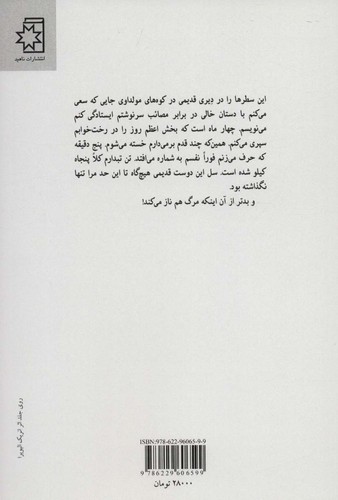 انتشارات ناهید
این سطرها را در دِیری قدیمی در کوه‌های مولداوی جایی که سعی
می‌کنم با دستان خالی در برابر مصائب سرنوشتم ایستادگی کنم
می‌نویسم. چهار ماه است که بخش اعظم روز را در رخت‌خوابم
سپری می‌کنم. همین‌که چند قدم برمی‌دارم خسته می‌شوم. پنج دقیقه
که حرف می‌زنم فوراً نفسم به شماره می‌افتد. تن تبدارم کلاً پنجاه
کیلو شده است. سل این دوست قدیمی هیچ‌گاه تا این حد مرا تنها
نگذاشته بود.
و بدتر از آن اینکه مرگ هم ناز می‌کند!
روی جلد اثر اریک الویرا
ISBN: 978-622-96065-9-9
9 786229 606599
۲۸۰۰۰ تومان